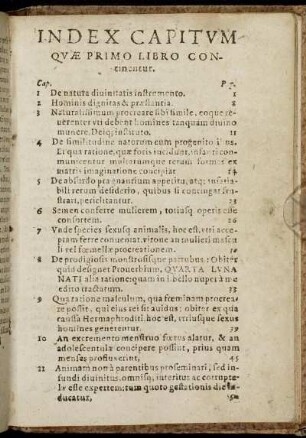 INDEX CAPITVM
QVÆ PRIMO LIBRO CON-
tinentur.
Cap. Pag.
1 De natura diuinitatis instrumento. 1
2 Hominis dignitas & præstantia. 8
3 Naturalissimum procreare sibi simile, eoque re-
uerenter vti debent homines tanquam diuino
munere, Deiq; instituto. 11
4 De similitudine natorum cum progenito
Et qua ratione, quæ foris incidunt, infanti com-
municentur multarumque rerum formæ ex
matris imaginatione concipiat 14
5 De absurdo prægnantium appetitu, atq; insatia-
bili rerum desiderio, quibus si contingat fru-
strari, periclitantur. 23
6 Semen conferre mulierem, totiusq; operis esse
consortem. 26
7 Vnde species sexusq; animalis, hoc est, viri acce-
ptam ferre conueniat, virone an mulieri mascu-
li vel fœmellæ procreationem.
8 De prodigiosis monstrosisque partubus: Obiter
quid designet Prouerbium, QVARTA LVNA
NATI alia ratione: quam in libello nuper à me
edito tractatum. 33
9 Qua ratione masculum, qua fœminam procrea-
re possit, qui eius rei sit auidus: obiter ex qua
caussa Hermaphroditi, hoc est, vtriusque sexus
homines generentur. 39
10 An excremento menstruo fœtus alatur, & an
adolescentulæ concipere possint, prius quam
menses profluxerint, 45
11 Animam non à parentibus proseminari, sed in-
fundi diuinitus, omnisq; interitus ac corrupte-
læ esse expertem: tum quoto gestationis die in-
ducatur,